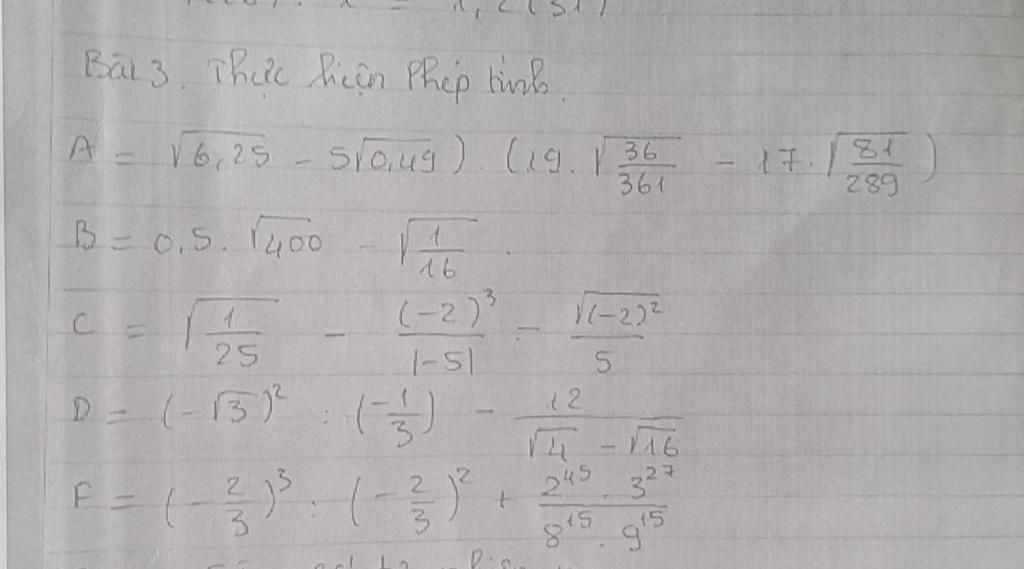 Bài 3. Thực hiện Phép tính.
A = √6,25 - 5√0,49) . (19. √36/361 - 17. √81/289)
B = 0,5. √400 - √1/16 .
C = √1/25 - (-2)³/|-5| - √(-2)²/5
D = (-√3)² : (-1/3) - 12/√4 - √16
F = (-2/3)³ : (-2/3)² + 2⁴⁵ . 3²⁷/8¹⁵ . 9¹⁵